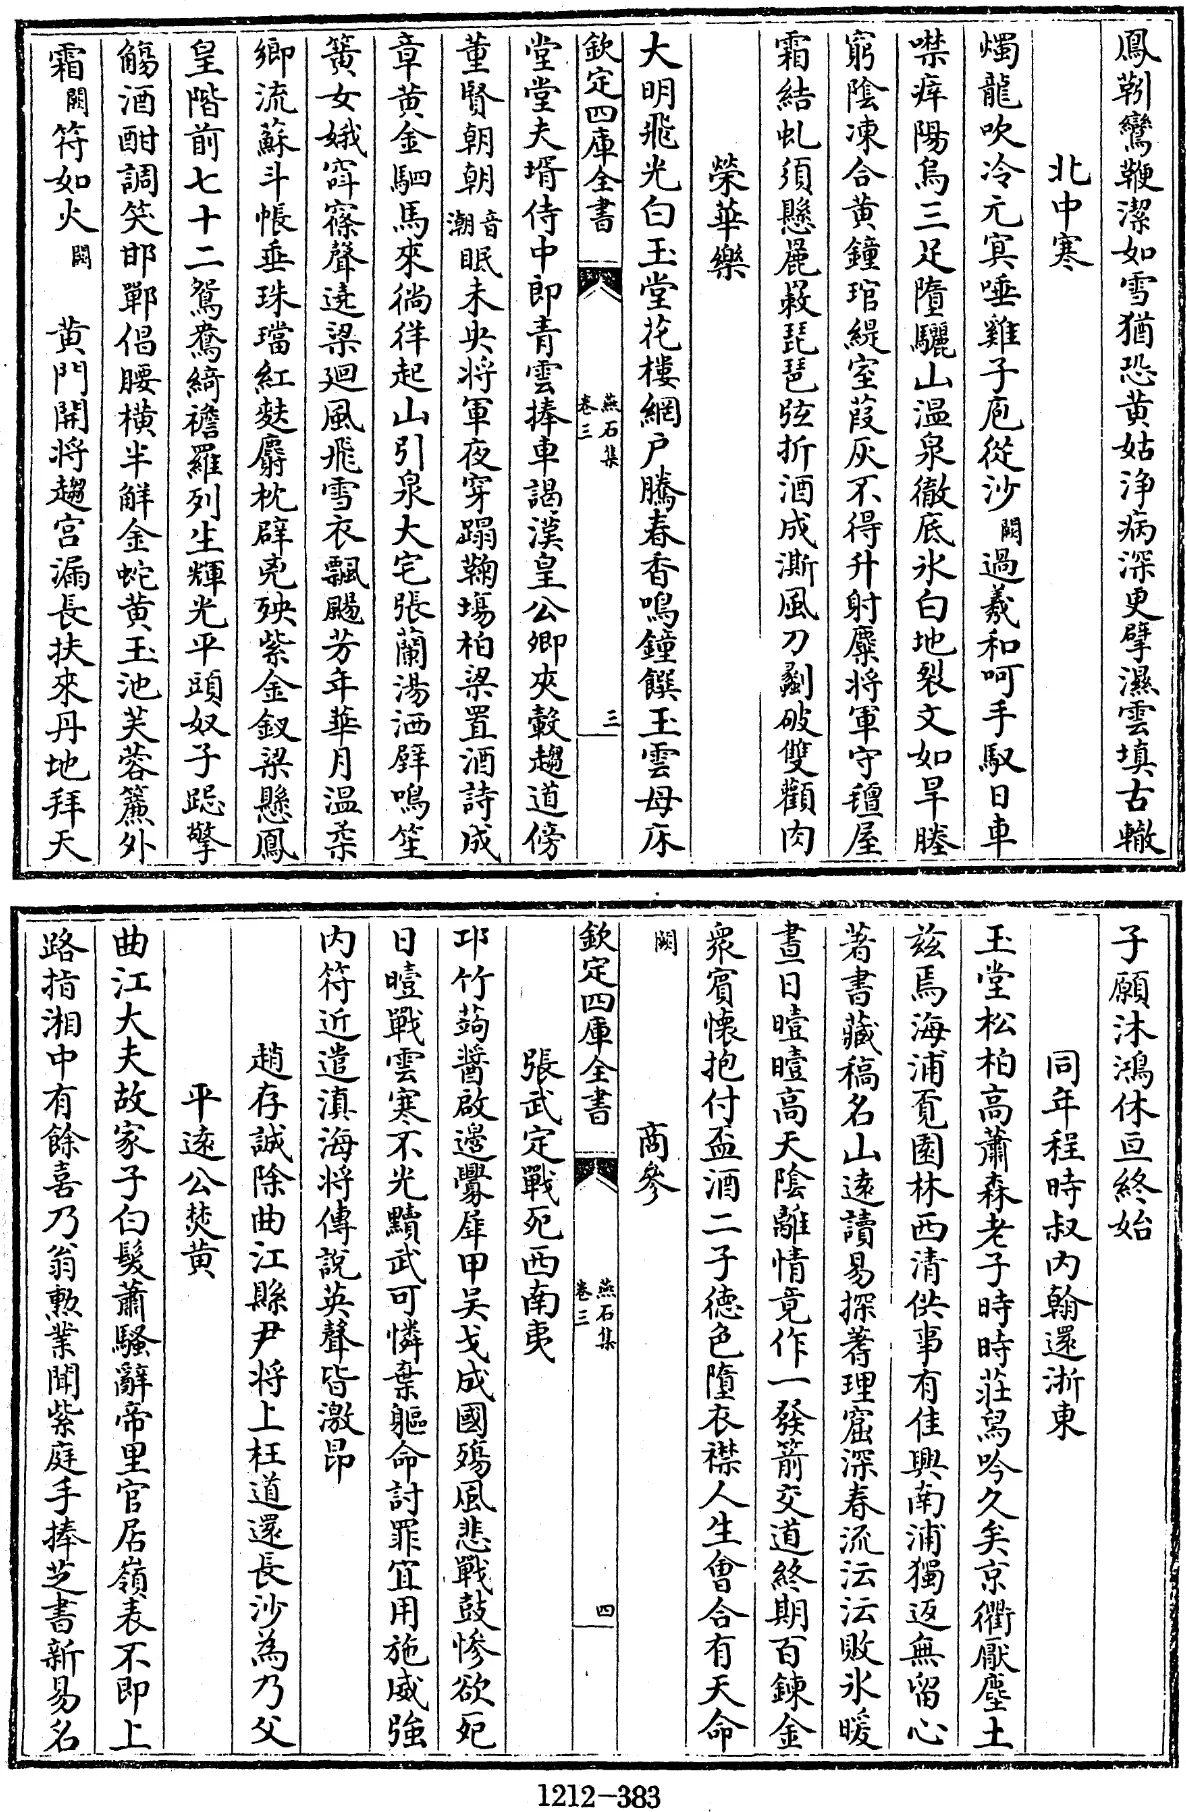 鳳靷鸞鞭潔如雪猶恐黄姑浄病深更擘濕雲填古轍
北中寒
燭龍吹冷元冥唾雞子卮從沙闕過羲和呵手馭日車
噤痒陽烏三足墮驪山温泉徹底氷白地裂文如旱塍
窮陰凍合黄鐘琯緹室葭灰不得升射麋將軍守氊屋
霜結虬須懸麗蔌琵琶弦折酒成澌風刀剷破雙顴肉
榮華樂
大明飛光白玉堂花樓網户騰春香鳴鐘饌玉雲母床
欽定四庫全書
燕石集
卷三
三
堂堂夫壻侍中郎青雲捧車謁漢皇公卿夾轂趨道傍
董賢朝朝音潮眠未央將軍夜穿蹋鞠塲柏梁置酒詩成
章黄金駟馬來徜徉起山引泉大宅張蘭湯洒壁鳴笙
簧女娥窅窱聲遶梁廻風飛雪衣飄颺芳年華月温柔
鄉流蘇斗帳垂珠璫紅麩麝枕辟兎殃紫金釵梁懸鳳
皇階前七十二鴛鴦綺襜羅列生輝光平頭奴子跽擎
觴酒酣調笑邯鄲倡腰横半觧金蛇黄玉池芙蓉簾外
霜闕符如火闕　黄門開將趨宫漏長扶來丹地拜天
子願沐鴻休亘終始
同年程時叔内翰還浙東
玉堂松柏高蕭森老子時時莊舄吟久矣京衢厭塵土
兹焉海浦覓園林西清供事有佳興南浦獨返無留心
著書藏稿名山逺讀易探蓍理窟深春流沄沄敗氷暖
晝日曀曀高天陰離情竟作一發箭交道終期百鍊金
衆賓懷抱付盃酒二子徳色墮衣襟人生會合有天命
闕　商參
欽定四庫全書
燕石集
卷三
四
張武定戰死西南夷
邛竹蒟醬啟邊釁犀甲吴戈成國殤風悲戰鼓惨欲死
日曀戰雲寒不光黷武可憐棄軀命討罪宜用施威強
内符近遣滇海將傳說英聲皆激昂
趙存誠除曲江縣尹將上枉道還長沙為乃父
平逺公焚黄
曲江大夫故家子白髮蕭騷辭帝里官居嶺表不即上
路指湘中有餘喜乃翁勲業聞紫庭手捧芝書新易名
1212-383